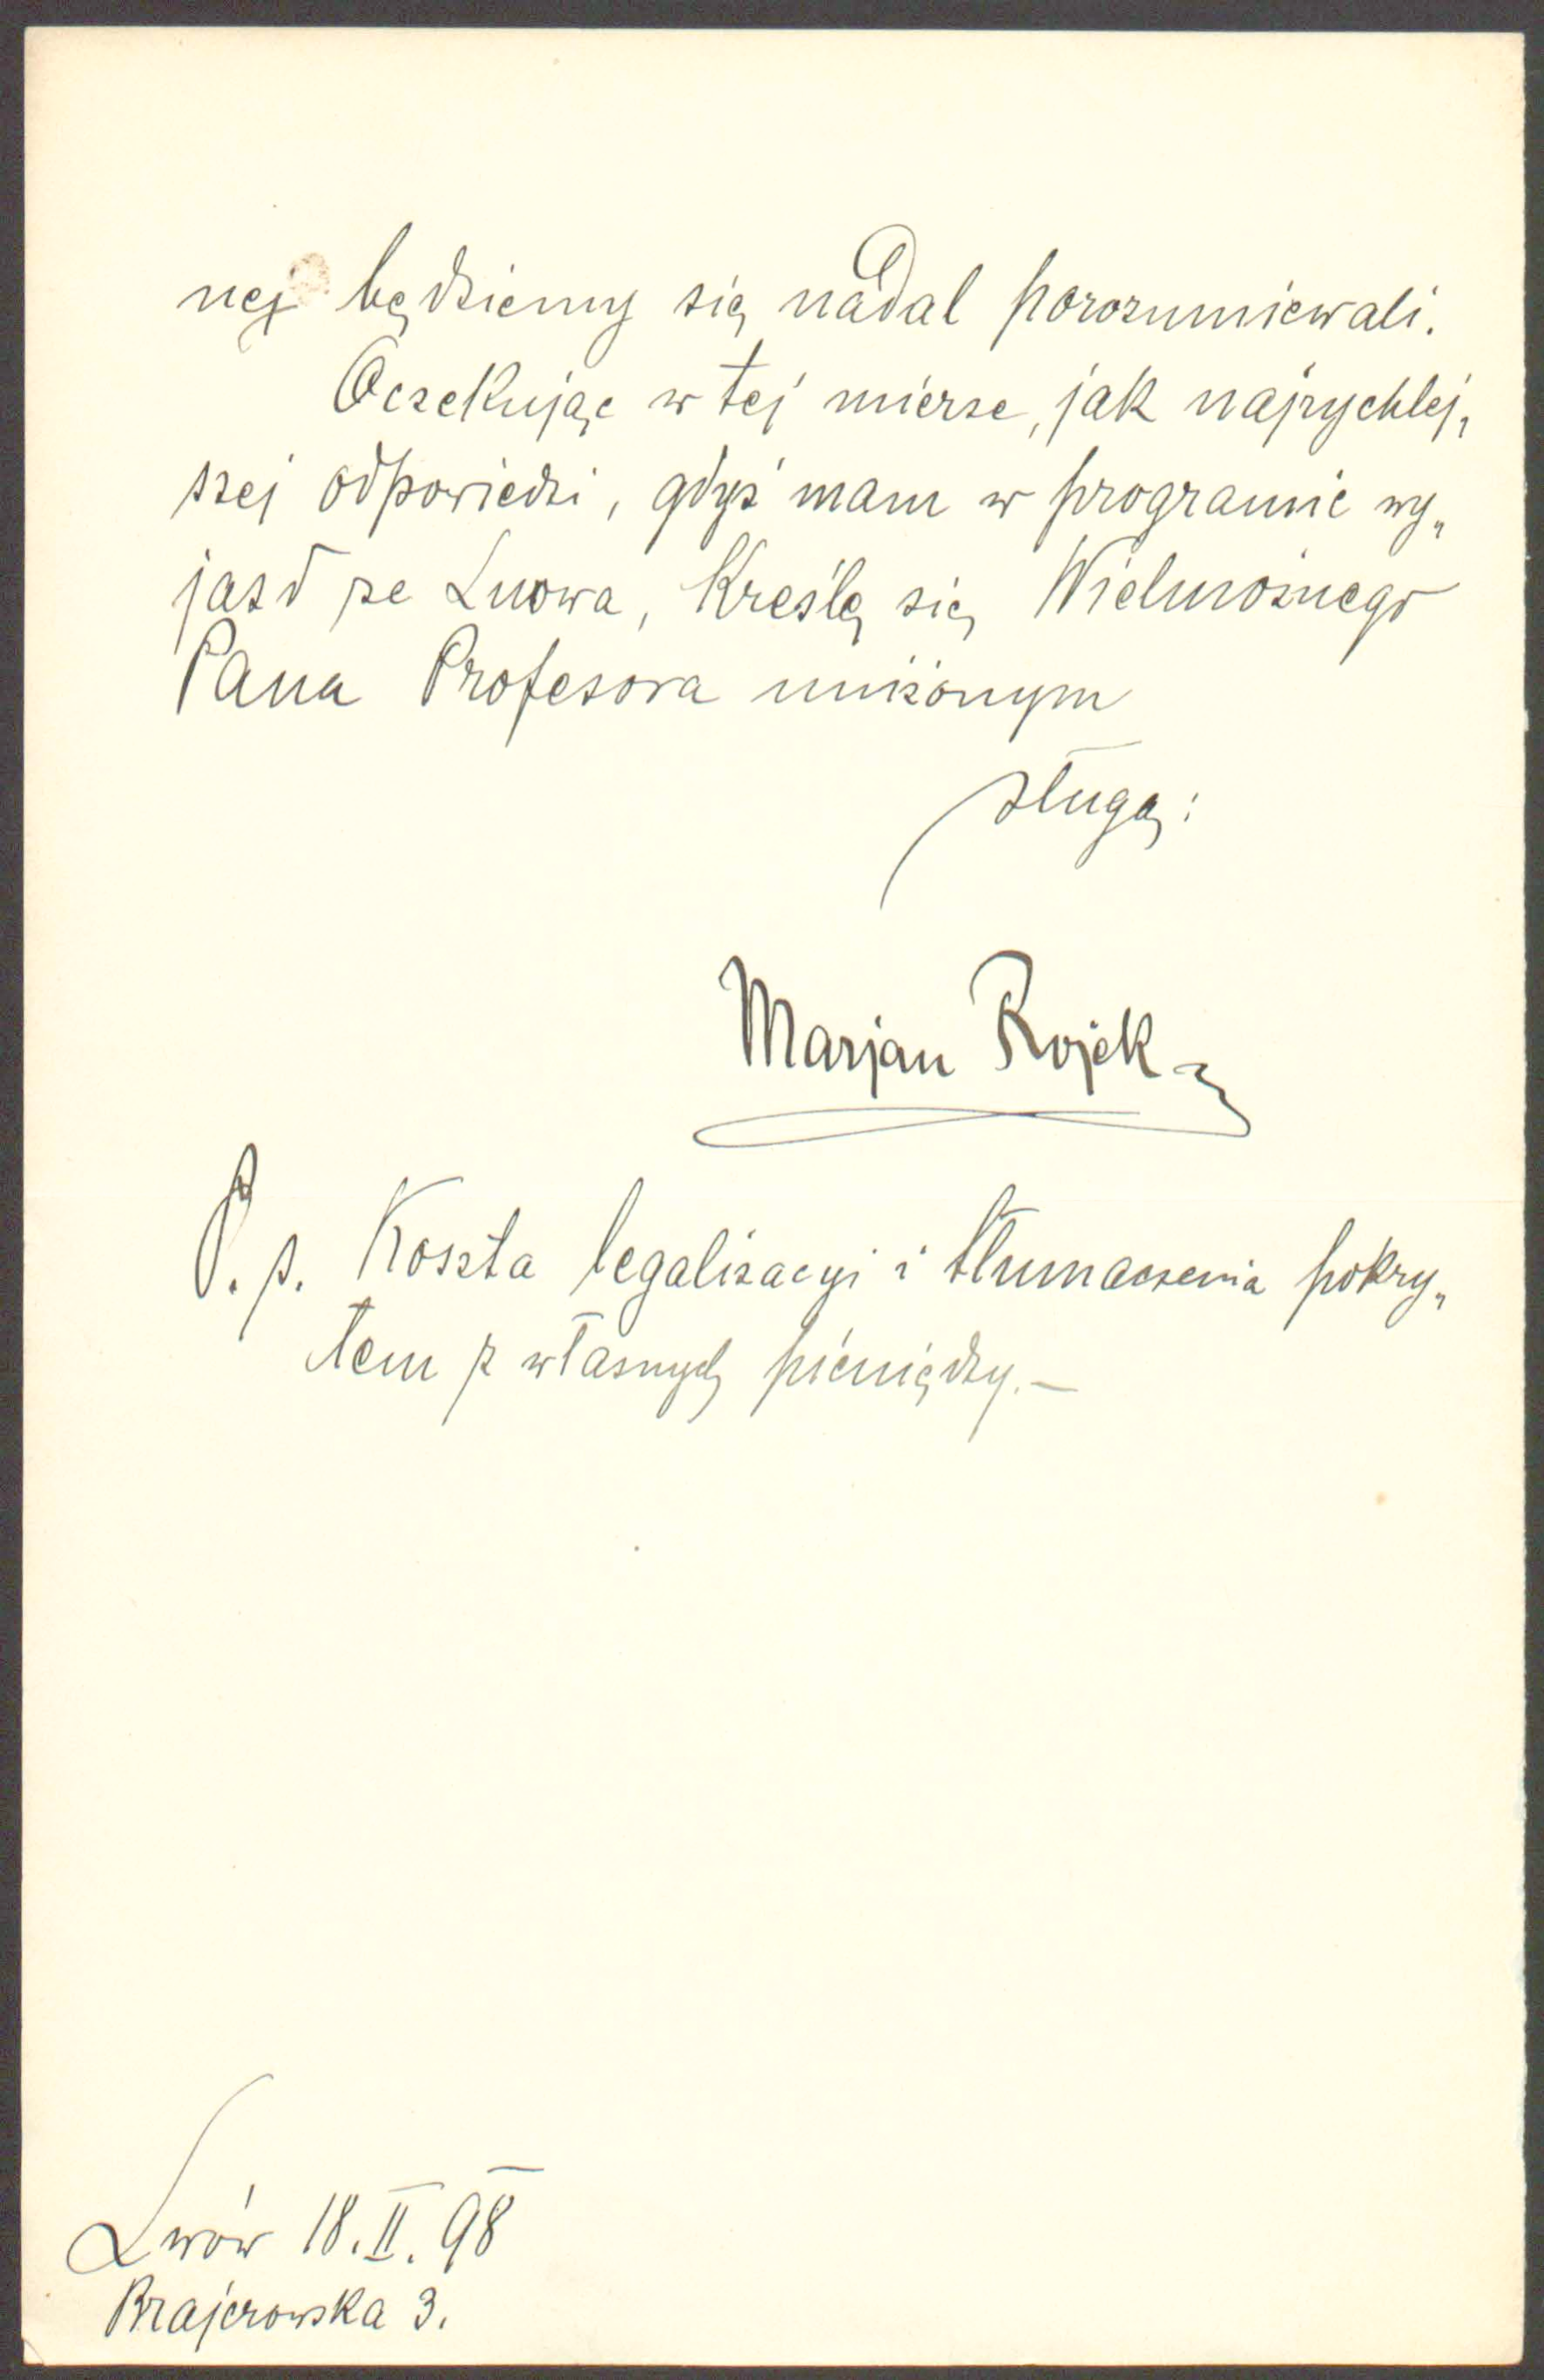 nej będziemy się nadal porozumiewali.
Oczekując w tej mierze, jak najrychlej„
szej odpowiedzi, gdyż mam w programie wy„
jazd ze Lwowa, kreślę się Wielmożnego
Pana Profesora uniżonym
sługą:
Marjan Rojek
P. s. Koszta legalizacyi i tłumaczenia pokry„
łem z własnych pieniędzy.—
Lwów 18. II. 98
Brajerowska 3.